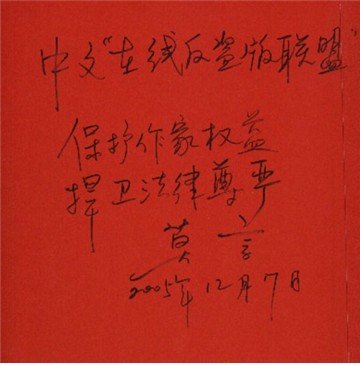 中文"在线反盗版联盟"
保护作家权益
捍卫法律尊严
莫言
2005年12月7日